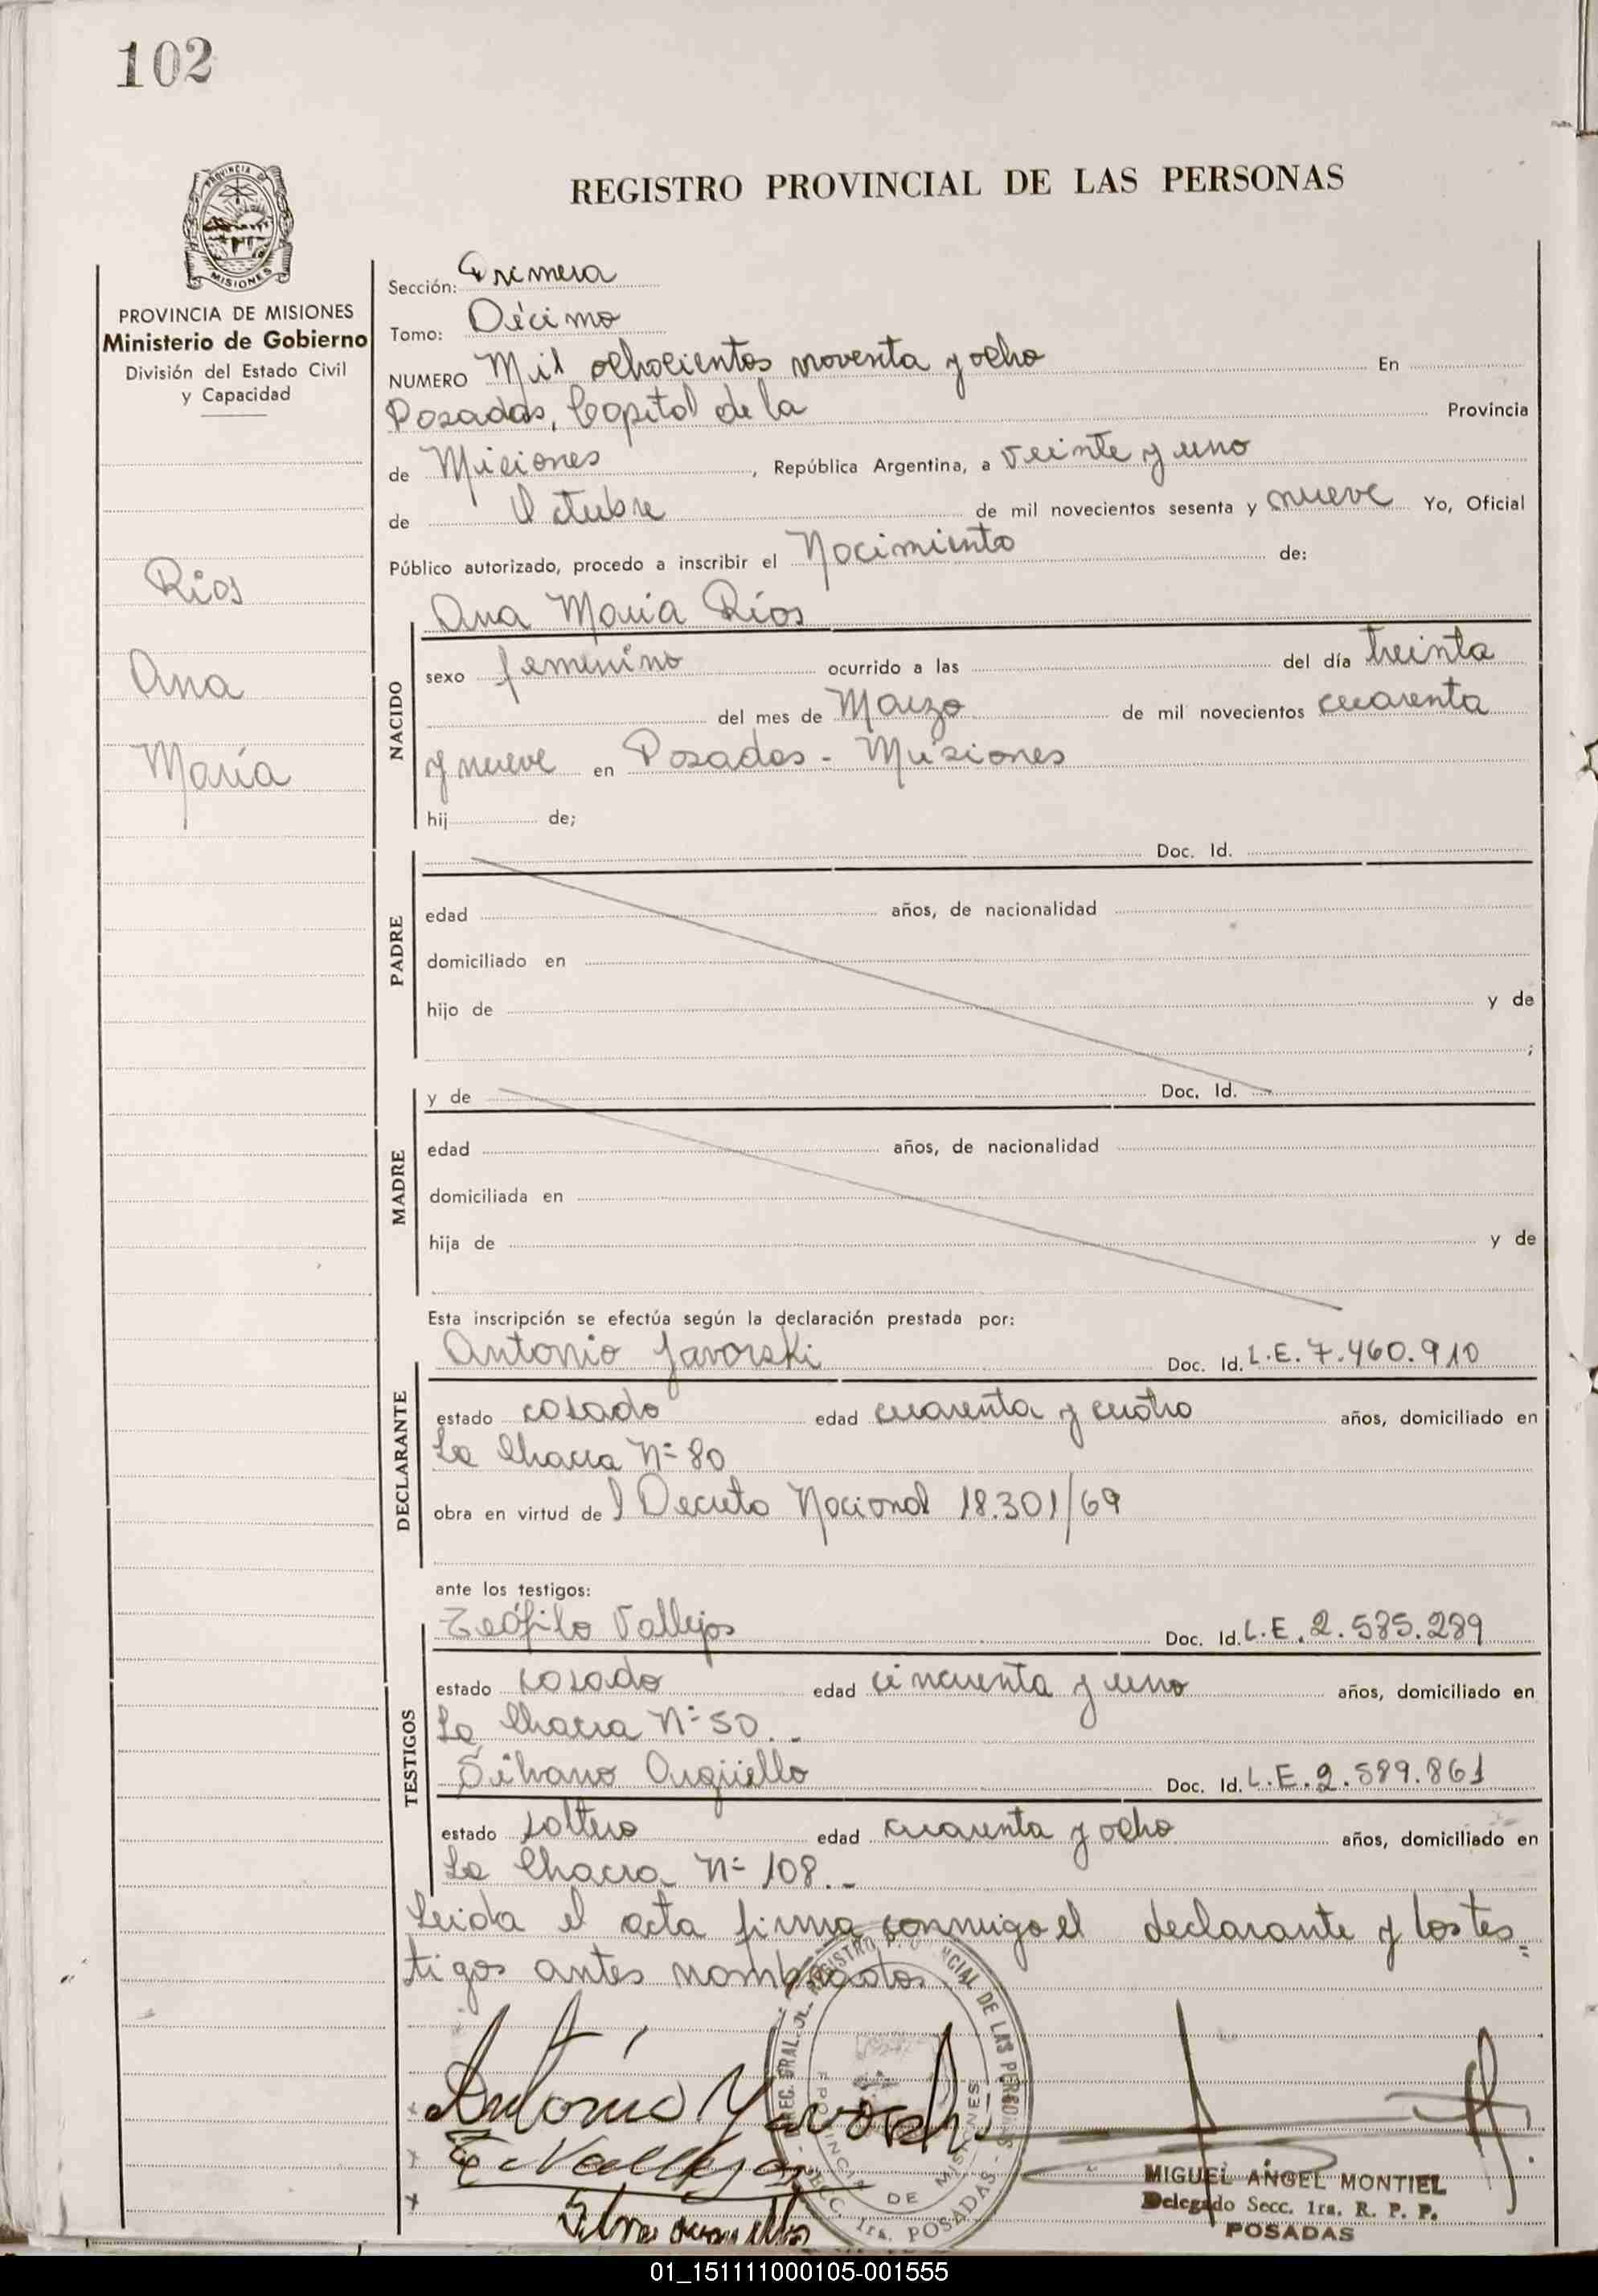 102
REGISTRO PROVINCIAL DE LAS PERSONAS
PROVINCIA DE MISIONES
Ministerio de Gobierno
División del Estado Civil
y Capacidad
Rios
Ana
María
Sección: Primera
Tomo: Décimo
NUMERO Mil ochocientos noventa y ocho En
Posadas, Capital de la Provincia
de Misiones, República Argentina, a veinte y uno
de Octubre de mil novecientos sesenta y nueve Yo, Oficial
Público autorizado, procedo a inscribir el Nacimiento de:
NACIDO
Ana María Ríos
sexo femenino ocurrido a las del día treinta
del mes de Marzo de mil novecientos cuarenta
y nueve en Posadas - Misiones
hij de;
PADRE
Doc. Id.
edad años, de nacionalidad
domiciliado en
hijo de y de
;
MADRE
y de Doc. Id.
edad años, de nacionalidad
domiciliada en
hija de y de
Esta inscripción se efectúa según la declaración prestada por:
DECLARANTE
Antonio Javorski Doc. Id. L.E. 7.460.910
estado casado edad cuarenta y cuatro años, domiciliado en
La Chacra Nº 80
obra en virtud de l Decreto Nacional 18.301/69
ante los testigos:
TESTIGOS
Teófilo Vallejos Doc. Id. L.E. 2.585.289
estado casado edad cincuenta y uno años, domiciliado en
La Chacra Nº 50.-
Silvano Argüello Doc. Id. L.E. 2.589.861
estado soltero edad cuarenta y ocho años, domiciliado en
La Chacra Nº 108.-
Leida el acta firma conmigo el declarante y los tes=
tigos antes nombrados
Antonio Javorski
T. Vallejos
MIGUEL ANGEL MONTIEL
Delegado Secc. 1ra. R. P. P.
POSADAS
01_151111000105-001555